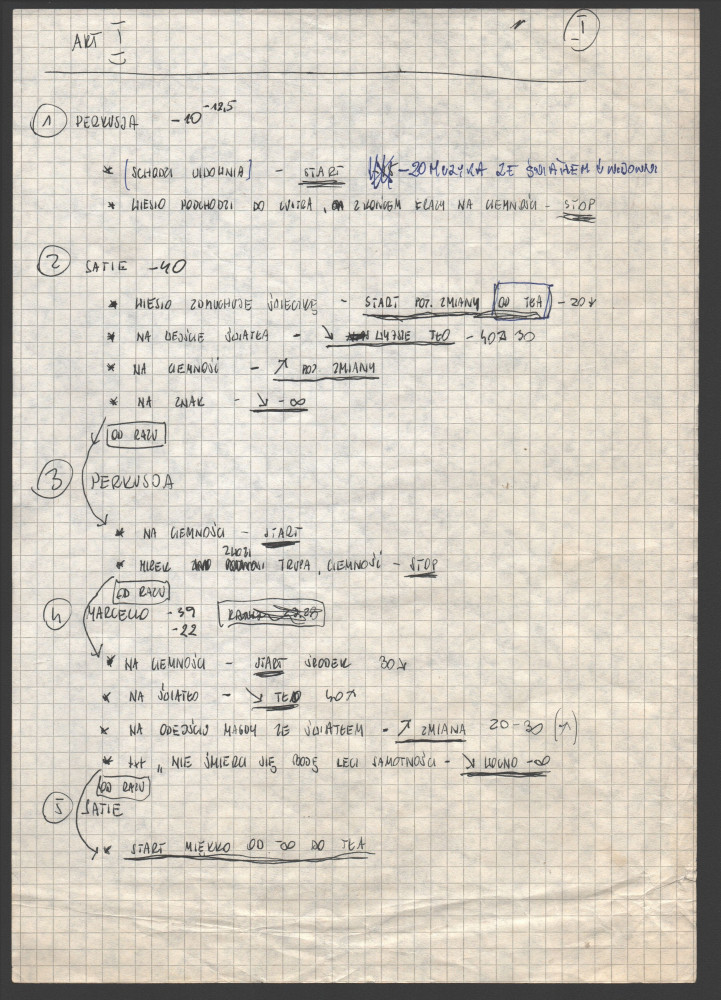 AKT I
I
1 PERKUSJA -10 -12,5
* [SCHODZI WIDOWNIA] - START -20 MUZYKA ZE ŚWIATŁEM WIDOWNI
* WIESIO PODCHODZI DO LUSTRA, Z KOŃCEM NA CIEMNOŚCI - STOP
2 SATIE -40
* WIESIO ZDMUCHUJE ŚWIECZKĘ - START POT. ZMIANY OD TŁA -20
* NA WEJŚCIE ŚWIATŁA - ↘ TŁO -40 ↗ 30
* NA CIEMNOŚĆ - ↗ POT. ZMIANY
* NA ZNAK - ↘ -∞
OD RAZU
3 PERKUSJA
* NA CIEMNOŚCI - START
* MIREK TRUPA, CIEMNOŚĆ - STOP
OD RAZU
4 MARCELLO -39
-22
* NA CIEMNOŚCI - START ŚRODEK 30↘
* NA ŚWIATŁO - ↘ TŁO 40↗
* NA ODEJŚCIU MAGDY ZE ŚWIATŁEM - ↗ ZMIANA 20-30 (↗)
* txt „NIE ŚMIERCI SIĘ BOJĘ LECZ SAMOTNOŚCI - ↘ WOLNO -∞
OD RAZU
5 SATIE
* START MIĘKKO OD -∞ DO TŁA